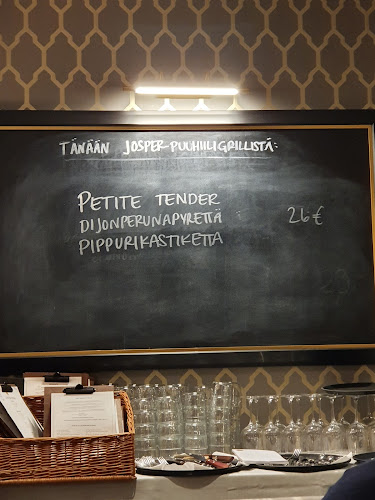 TÄNÄÄN JOSPER-PUUHIILIGRILLISTÄ:
PETITE TENDER
DIJONPERUNAPYRETTÄ 26€
PIPPURIKASTIKETTA